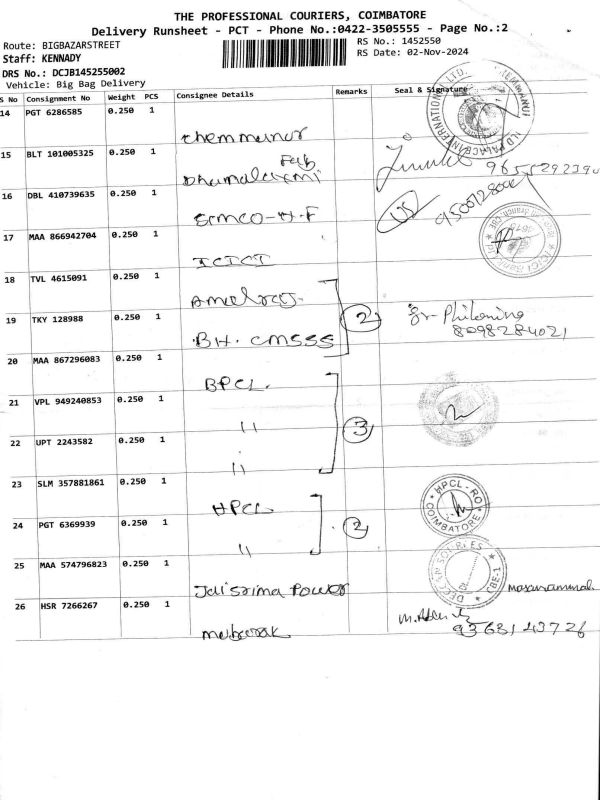 THE PROFESSIONAL COURIERS, COIMBATORE
Delivery Runsheet - PCT - Phone No.:0422-3505555 - Page No.:2
Route: BIGBAZARSTREET
RS No.: 1452550
Staff: KENNADY
RS Date: 02-Nov-2024
DRS No.: DCJB145255002
Vehicle: Big Bag Delivery
S No Consignment No Weight PCS Consignee Details Remarks Seal & Signature
14 PGT 6286585 0.250 1 Chemmanur
15 BLT 101005325 0.250 1 Dhanalaxmi Fab
16 DBL 410739635 0.250 1 SIMCO-H-F
17 MAA 866942704 0.250 1 ICICI
18 TVL 4615091 0.250 1 Amalraj
19 TKY 128988 0.250 1 BH. CMSSS 2 Sr. Philomina 8098284021
20 MAA 867296083 0.250 1 BPCL
21 VPL 949240853 0.250 1 "
22 UPT 2243582 0.250 1 " 3
23 SLM 357881861 0.250 1 HPCL HPCL-RO COIMBATORE
24 PGT 6369939 0.250 1 " 2
25 MAA 574796823 0.250 1 Jaisrima Power
26 HSR 7266267 0.250 1 Mubarak 9363143726